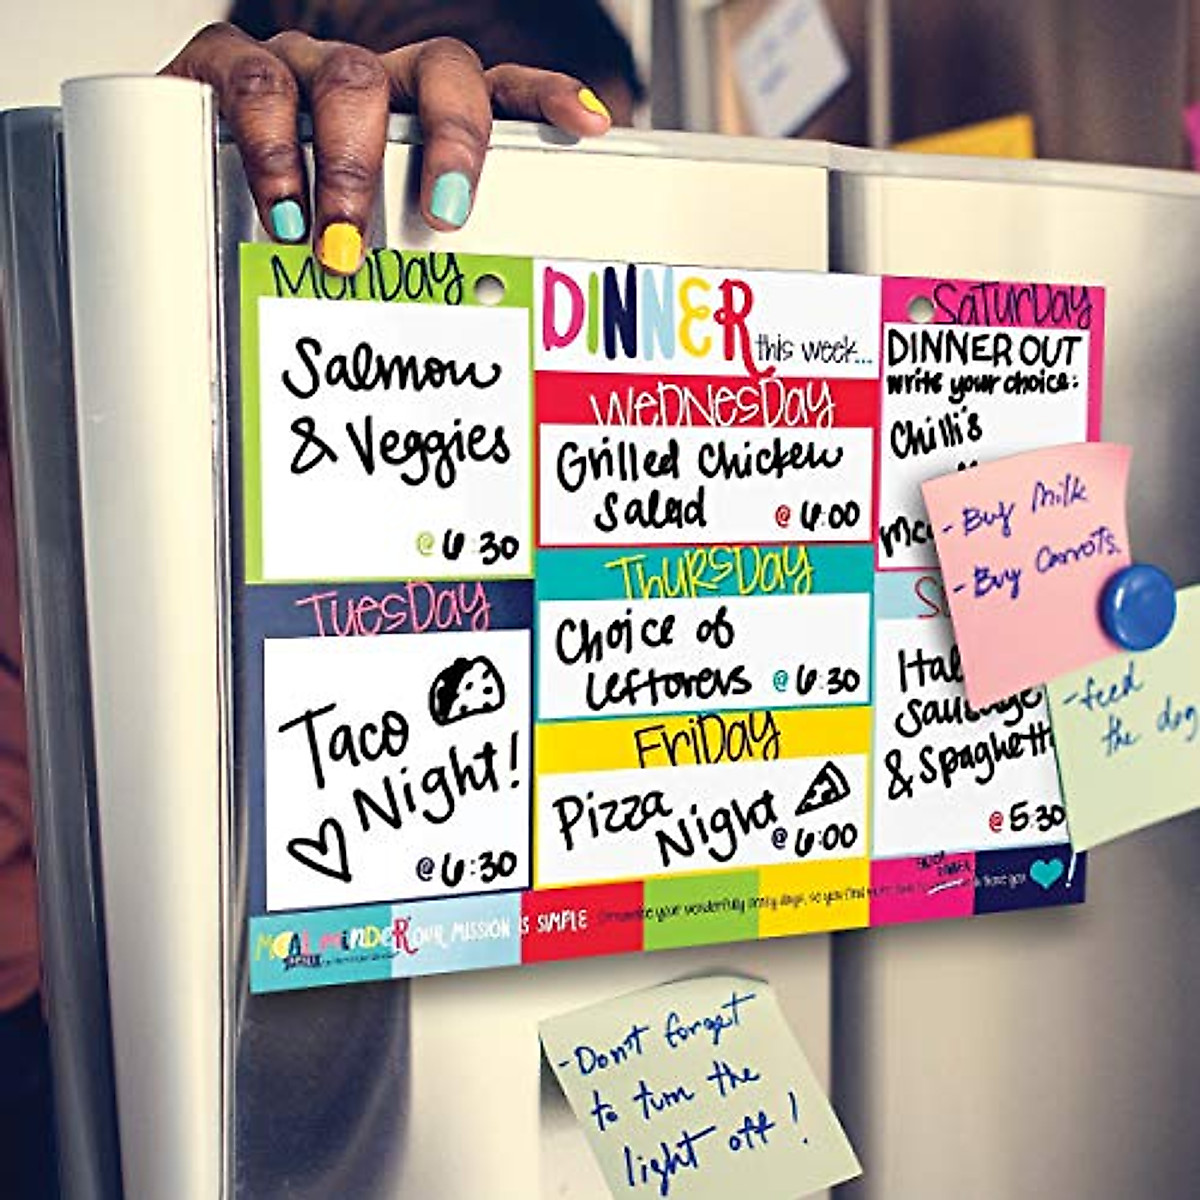 Monday
Salmon
& Veggies
@ 6:30
TuesDay
Taco
Night!
@ 6:30
DINNER
this week...
WeDNesDay
Grilled Chicken
Salad
@ 6:00
ThursDay
Choice of
Leftovers @ 6:30
FriDay
Pizza
Night
@ 6:00
SaTurDay
DINNER OUT
write your choice:
Chilli's
- Buy Milk
- Buy Carrots.
Sausage
& Spaghetti
@ 5:30
- feed
the dog
MEAL minDeR OUR MISSION IS SIMPLE
your wonderfully crazy days, so you find
& those you
!
- Don't forget
to turn the
light off!